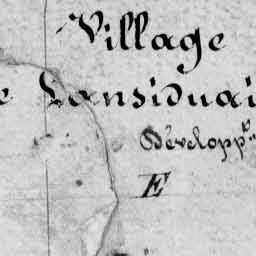 Village
e Lansiduai
Développt.
E